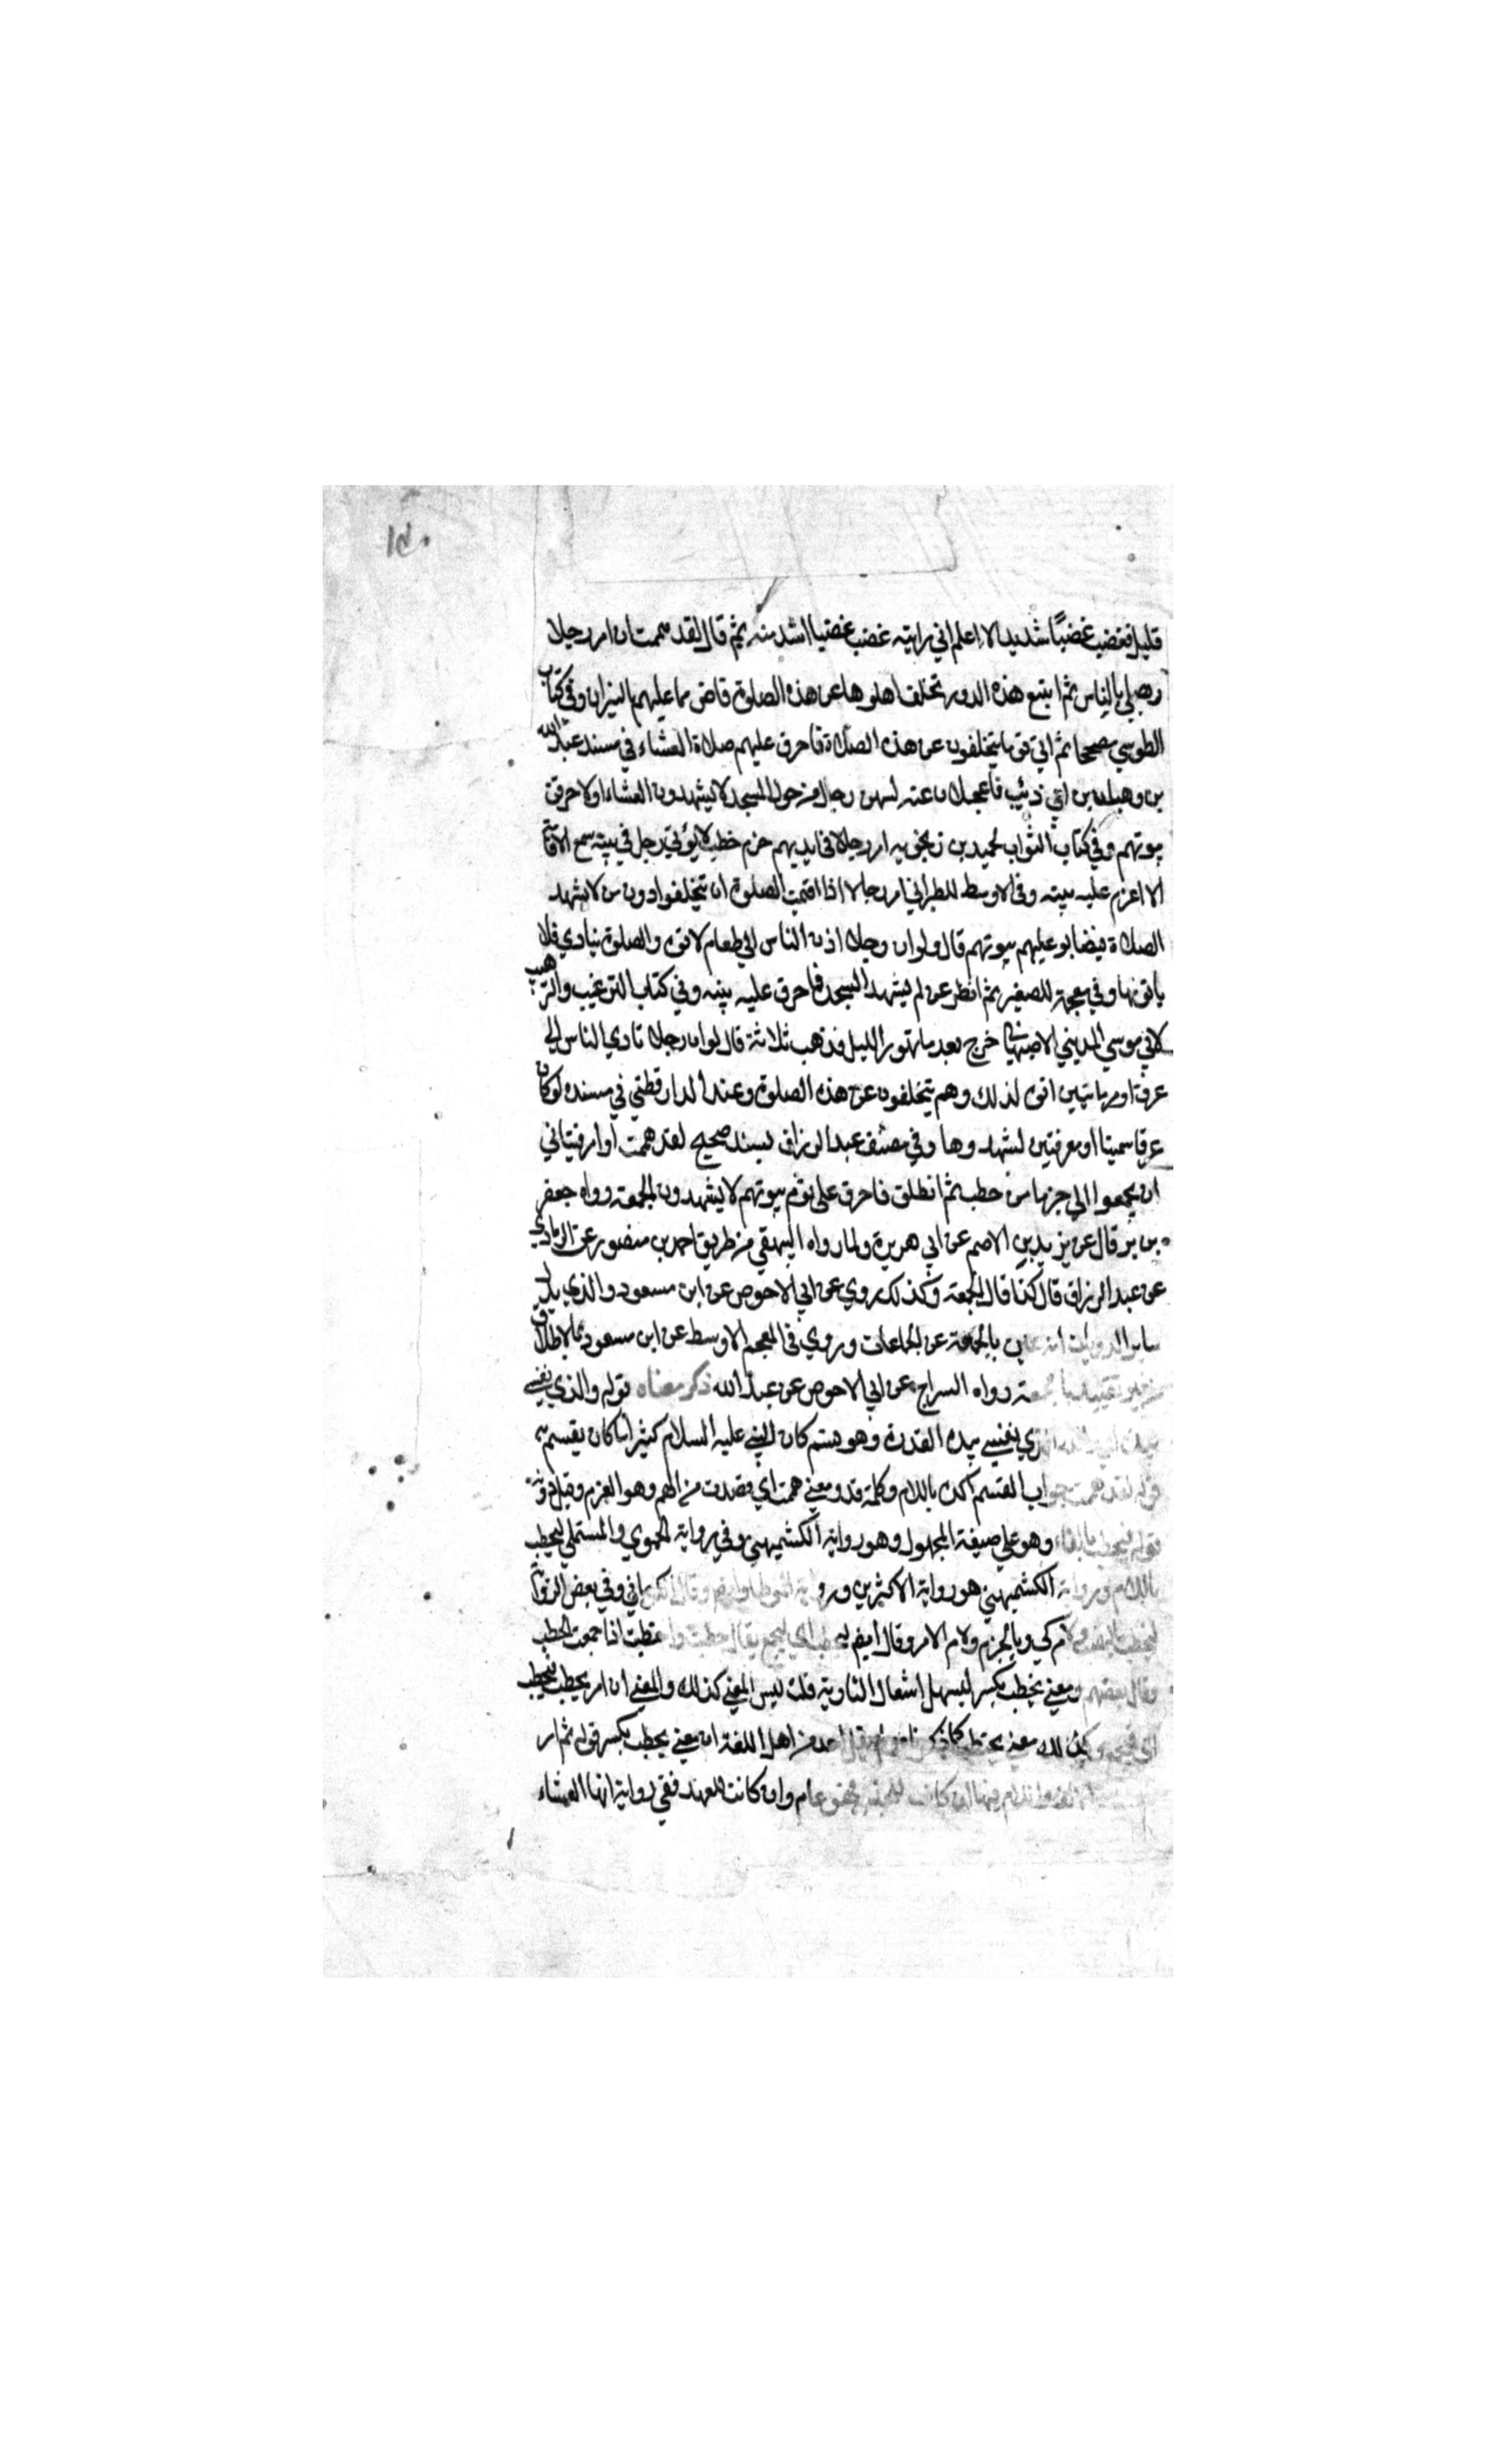 ١٤٠
قليل فغضب غضبًا شديدا لا اعلم اني رايته غضب غضبا اشد منه ثم قال لقد هممت ان امر رجلا
يصلي بالناس ثم اتتبع هذه الدور تخلف اهلوها عن هذه الصلوة فاضرمها عليهم بالنيران وفي كتاب
الطوسي مصححا ثم اتي قوما يتخلفون عن هذه الصلاة فاحرق عليهم صلاة العشاء في مسند عبد الله
بن وهب بن ابي ذئيب لينتهين رجال من حول المسجد لا يشهدون العشاء او لاحرقن
بيوتهم وفي كتاب الثواب لحميد بن زنجويه امر رجلا في ايديهم حزم حطب لا يؤتي رجل في بيته سمع الاقامة
الا اعزم عليه بيته وفي الاوسط للطبراني امر رجالا اذا اقيمت الصلوة ان يتخلفوا دون من لا يشهد
الصلاة فيضابو عليهم بيوتهم قال ولو ان رجلا اذن الناس الي طعام لاتوه والصلوة ينادي فلا
ياتونها وفي معجمه الصغير ثم انظر عن لم يشهد المسجد فاحرق عليه بيته وفي كتاب الترغيب والترهيب
لابي موسي المديني الاصبهاني خرج بعد ما تهور الليل فذهب ثلاثة قال لو ان رجلا نادي الناس الي
عرق او مرماتين اتوه لذلك وهم يتخلفون عن هذه الصلوة وعند الدارقطني في مسنده لو كان
عرقا سمينا او معرقتين لشهدوها وفي مصنف عبد الرزاق بسند صحيح لقد هممت اوامر فتياني
ان يجمعوا الي حزما من حطب ثم انطلق فاحرق علي قوم بيوتهم لا يشهدون الجمعة رواه جعفر
بن برقان عن يزيد بن الاصم عن ابي هريرة ولما رواه البيهقي من طريق احمد بن منصور عن الرمادي
عن عبد الرزاق قال كذا قال الجمعة وكذلك روي عن ابي الاحوص عن ابن مسعود والذي يدل
ساير الروايات انه عبر بالجمعة عن الجماعات وروي في المعجم الاوسط عن ابن مسعود بالاطلاق
من غير تقييد بالجمعة رواه السراج عن ابي الاحوص عن عبد الله ذكر معناه قوله والذي نفسي
بيده اي والله الذي نفسي بيده القدرة وهو قسم كان النبي عليه السلام كثيرا ما كان يقسم به
قوله لقد هممت جواب القسم اكده باللام وكلمة قد ومعني هممت اي قصدت من الهم وهو العزم وقيل دونه
قوله فيحطب بالفاء وهو علي صيغة المجهول وهو رواية الكشميهني وفي رواية الحموي والمستملي ليحطب
باللام ورواية الكشميهني هو رواية الاكثرين ورواية الموطا وقال الكرماني وفي بعض الرواية
ليحطب بالنصب ولام كي وبالجزم ولام الامر وقال ايضم ليحطب اي ليجمع يقال حطبت واحتطبت اذا جمعت الحطب
وقال بعضهم ومعني يحطب يكسر ليسهل اشتعال النار به قلت ليس المعني كذلك والمعني ان امر بحطب فيحطب
اي فيجمع وكذلك معني يحتطب كما ذكرنا ولم يقل احد من اهل اللغة ان معني يحطب يكسر قوله ثم امر
الالف واللام فيها ان كانت للجنس فهو عام وان كانت للعهد ففي رواية انها العشاء